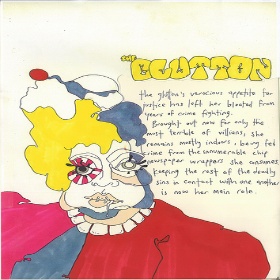 THE GLUTTON
the glutton's voracious appetite for
justice has left her bloated from
years of crime fighting.
Brought out now for only the
most terrible of villians, she
remains mostly indoors, being fed
crime from the innumerable chip
newspaper wrappers she consumes
keeping the rest of the deadly
sins in contact with one another
is now her main role.